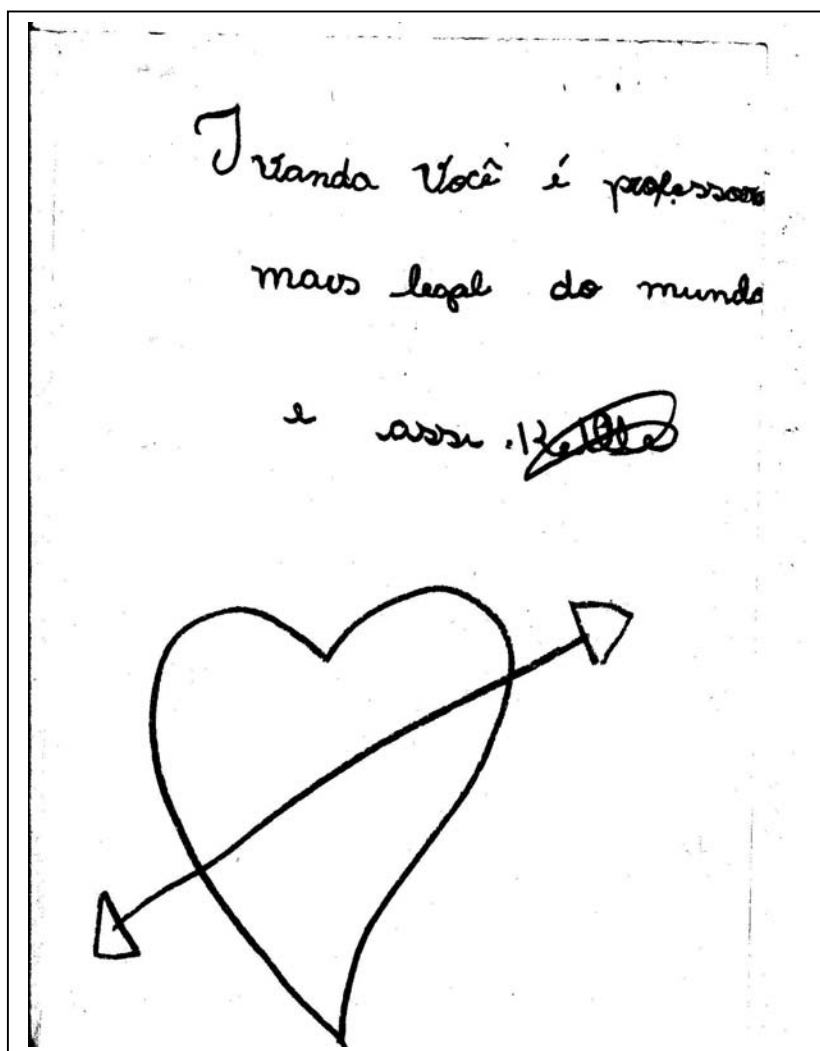 Ivanda Você é professora
mais legal do mundo
e assi.